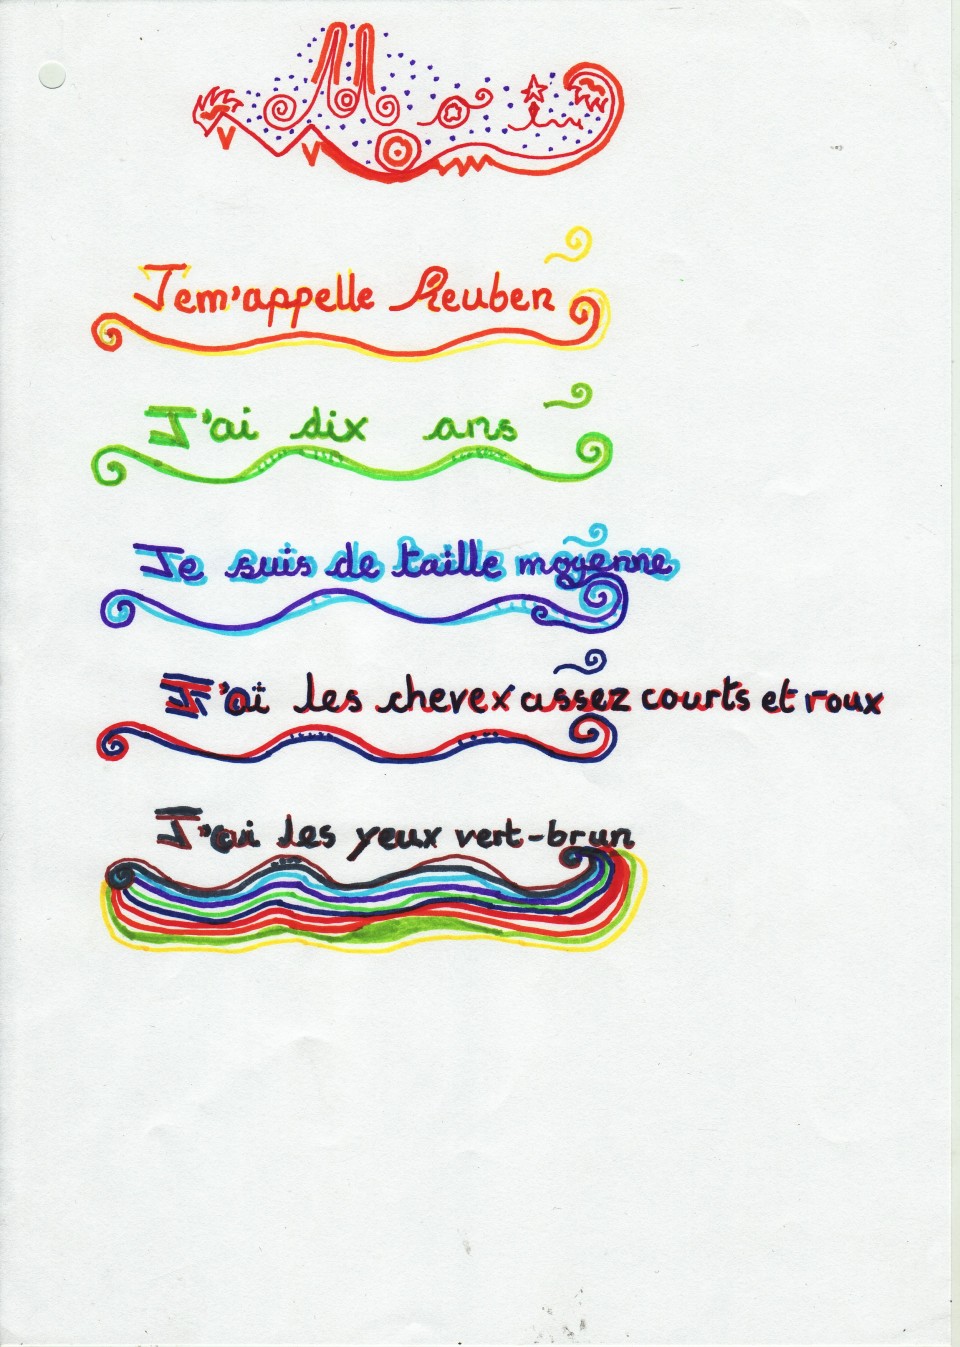 Je m'appelle Reuben
J'ai dix ans
Je suis de taille moyenne
J'aï les chevex assez courts et roux
J'ai les yeux vert-brun